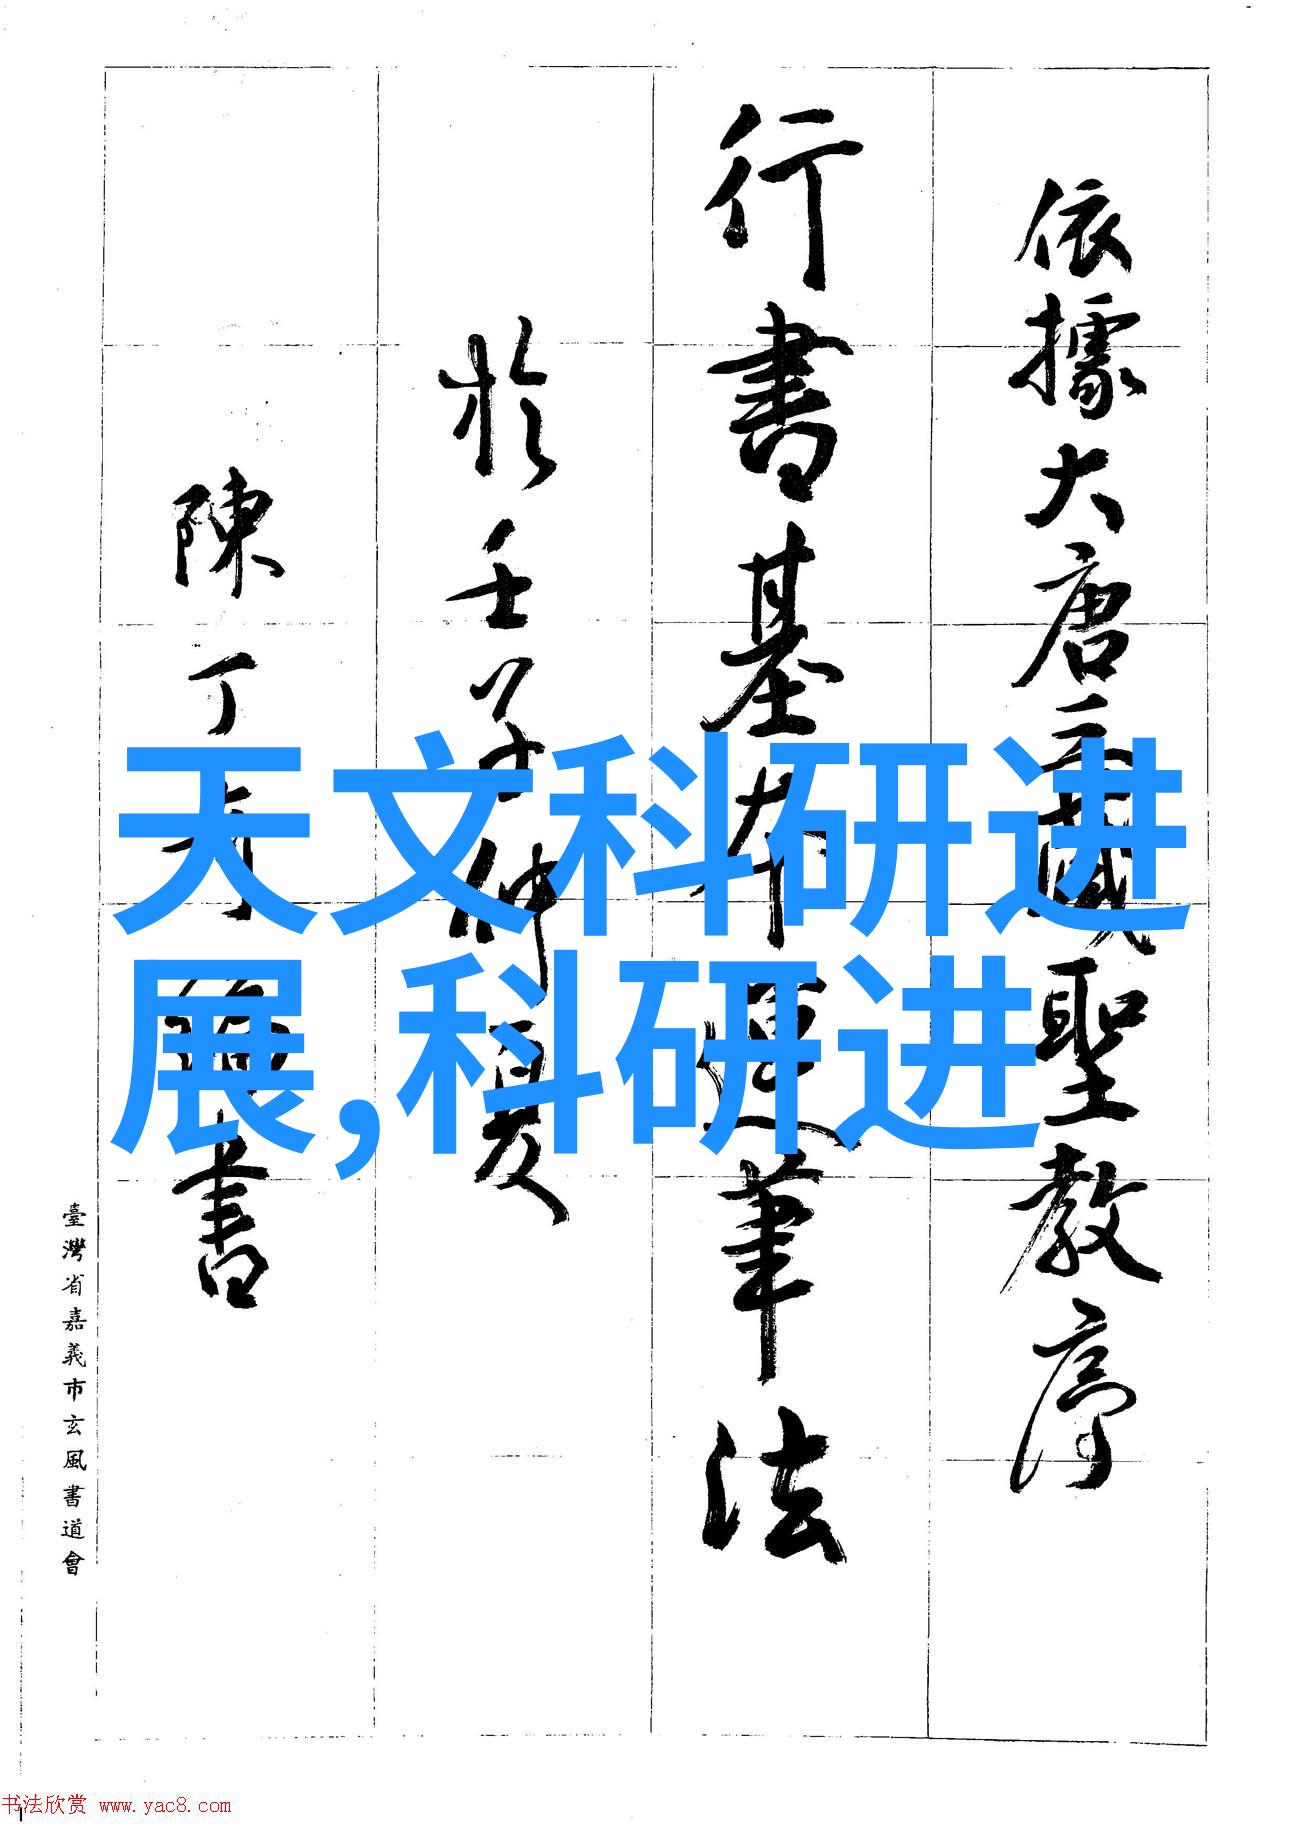 依據大唐三藏聖教序
行書基本運筆法
於壬子仲夏
陳丁奇 書
臺灣省嘉義市玄風書道會
天文科研进
展,科研进
书法欣赏 www.yac8.com